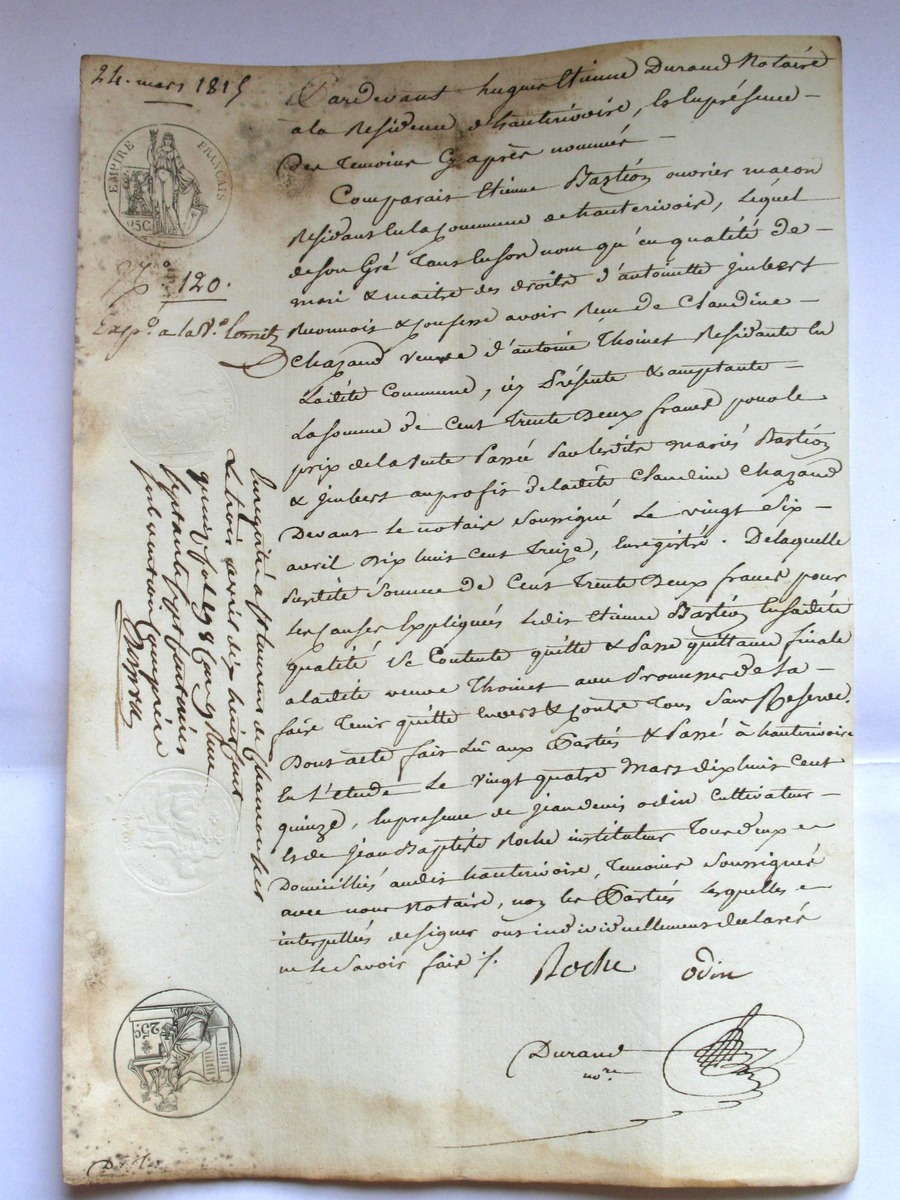 24. mars 1815
EMPIRE FRANÇAIS
25C.
N.o 120.
Exp.o a la V.e
Pardevant hugues Etienne Durand Notaire
a la Residence d'hauterivoire, En la présence
des temoins Cy après nommés
Comparait Etienne Bastion ouvrier maçon
Residant En la Commune de hauterivoire, Lequel
de son Gré tant En son nom qu'en qualité de
mari & maitre des droits d'antoinette jmbert
Reconnois & Confesse avoir Recu de Claudine
Chazaud veuve d'antoine Thoinet Residante En
Ladite Commune, icy Présente & acceptante
La somme de Cent trente Deux francs pour le
prix de la vente Passée Par lesdits mariés Bastion
& jmbert au profit de ladite Claudine Chazaud
Devant le notaire soussigné Le vingt Six
avril dix huit Cent treize, Enregistré. De laquelle
susdite Somme de Cent trente Deux francs pour
Les Causes Expliquées Ledit Etienne Bastion En sadite
qualité Se Contente quitte & Passe quittance finale
a ladite veuve Thoinet avec Promesse de La
faire tenir quitte Envers & Contre Tous Sans Reserve.
Dont acte fait Lû aux Parties & Passé à hauterivoire
En L'étude Le vingt quatre Mars dix huit Cent
quinze, En presence de jean denis odin Cultivateur
Et de jean Baptiste Roche instituteur Tous deux
Domiciliés audit hauterivoire, temoins Soussignés
avec nous Notaire, non les Parties Lesquelles
interpellées de signer ont individuellement declarés
ne le Savoir faire ./.
Roche odin
Durand
no.re
Enregistré a St Laurent de Chamousset
Le trois avril dix huit cent
quinze fol 98
25C.